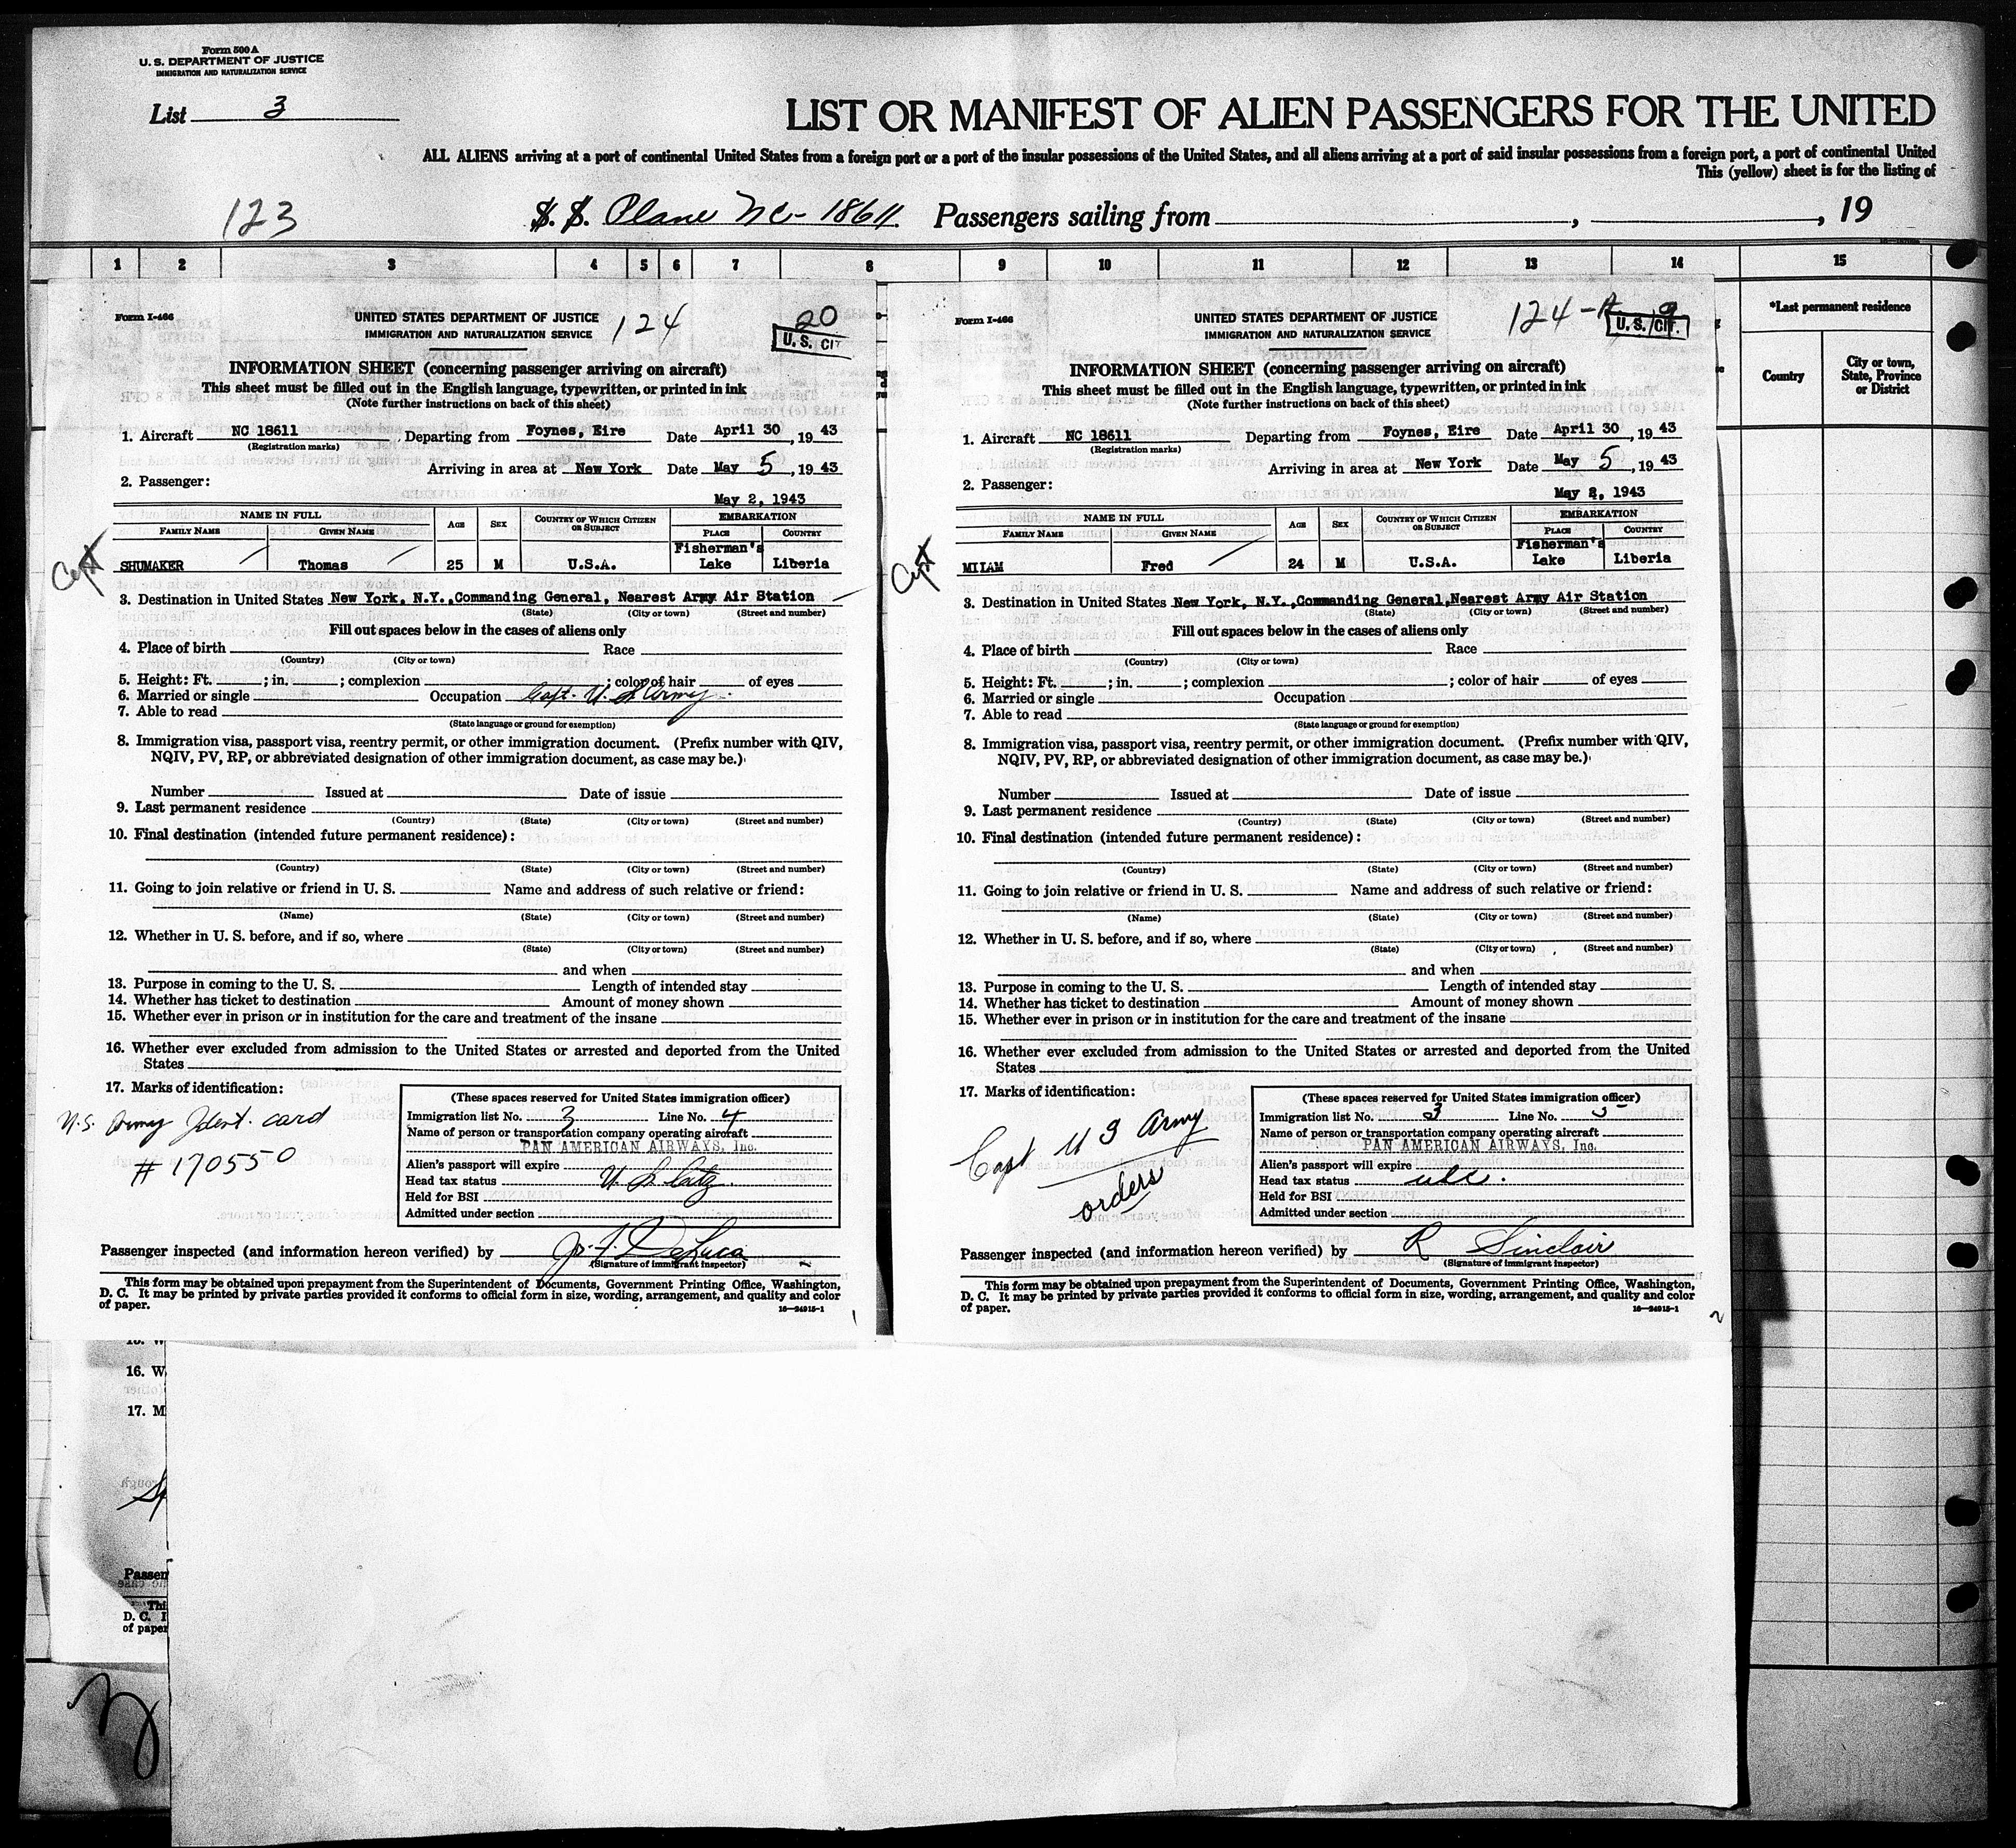 Form 500 A
U. S. DEPARTMENT OF JUSTICE
IMMIGRATION AND NATURALIZATION SERVICE
List 3
LIST OR MANIFEST OF ALIEN PASSENGERS FOR THE UNITED
ALL ALIENS arriving at a port of continental United States from a foreign port or a port of the insular possessions of the United States, and all aliens arriving at a port of said insular possessions from a foreign port, a port of continental United
This (yellow) sheet is for the listing of
123
S. S. Plane NC- 18611. Passengers sailing from , , 19
1 2 3 4 5 6 7 8 9 10 11 12 13 14 15
*Last permanent residence
Country
City or town, State, Province or District
Form I-466
UNITED STATES DEPARTMENT OF JUSTICE
IMMIGRATION AND NATURALIZATION SERVICE
124
20
U. S. CIT
INFORMATION SHEET (concerning passenger arriving on aircraft)
This sheet must be filled out in the English language, typewritten, or printed in ink
(Note further instructions on back of this sheet)
1. Aircraft NC 18611 Departing from Foynes, Eire Date April 30, 19 43
(Registration marks)
Arriving in area at New York Date May 5, 19 43
2. Passenger:
May 2, 1943
NAME IN FULL AGE SEX COUNTRY OF WHICH CITIZEN OR SUBJECT EMBARKATION
FAMILY NAME GIVEN NAME PLACE COUNTRY
Capt
SHUMAKER Thomas 25 M U.S.A. Fisherman's Lake Liberia
3. Destination in United States New York, N.Y.,Commanding General, Nearest Army Air Station
(State) (City or town) (Street and number)
Fill out spaces below in the cases of aliens only
4. Place of birth Race
(Country) (City or town)
5. Height: Ft. ; in. ; complexion ; color of hair of eyes
6. Married or single Occupation Capt. U. S Army.
7. Able to read
(State language or ground for exemption)
8. Immigration visa, passport visa, reentry permit, or other immigration document. (Prefix number with QIV,
NQIV, PV, RP, or abbreviated designation of other immigration document, as case may be.)
Number Issued at Date of issue
9. Last permanent residence
(Country) (State) (City or town) (Street and number)
10. Final destination (intended future permanent residence):
(Country) (State) (City or town) (Street and number)
11. Going to join relative or friend in U. S. Name and address of such relative or friend:
(Name) (State) (City or town) (Street and number)
12. Whether in U. S. before, and if so, where
(State) (City or town) (Street and number)
and when
13. Purpose in coming to the U. S. Length of intended stay
14. Whether has ticket to destination Amount of money shown
15. Whether ever in prison or in institution for the care and treatment of the insane
16. Whether ever excluded from admission to the United States or arrested and deported from the United
States
17. Marks of identification:
U.S. Army Ident. card
# 170550
(These spaces reserved for United States immigration officer)
Immigration list No. 3 Line No. 4
Name of person or transportation company operating aircraft
PAN AMERICAN AIRWAYS, Inc.
Alien's passport will expire
Head tax status U S Citz.
Held for BSI
Admitted under section
Passenger inspected (and information hereon verified) by DeLuca
(Signature of immigrant inspector)
This form may be obtained upon prepayment from the Superintendent of Documents, Government Printing Office, Washington,
D. C. It may be printed by private parties provided it conforms to official form in size, wording, arrangement, and quality and color
of paper.
16—24915-1
1
Form I-466
UNITED STATES DEPARTMENT OF JUSTICE
IMMIGRATION AND NATURALIZATION SERVICE
124-A
9
U. S. CIT.
INFORMATION SHEET (concerning passenger arriving on aircraft)
This sheet must be filled out in the English language, typewritten, or printed in ink
(Note further instructions on back of this sheet)
1. Aircraft NC 18611 Departing from Foynes, Eire Date April 30, 19 43
(Registration marks)
Arriving in area at New York Date May 5, 19 43
2. Passenger:
May 2, 1943
NAME IN FULL AGE SEX COUNTRY OF WHICH CITIZEN OR SUBJECT EMBARKATION
FAMILY NAME GIVEN NAME PLACE COUNTRY
Capt
MILAM Fred 24 M U.S.A. Fisherman's Lake Liberia
3. Destination in United States New York, N.Y.,Commanding General,Nearest Army Air Station
(State) (City or town) (Street and number)
Fill out spaces below in the cases of aliens only
4. Place of birth Race
(Country) (City or town)
5. Height: Ft. ; in. ; complexion ; color of hair of eyes
6. Married or single Occupation
7. Able to read
(State language or ground for exemption)
8. Immigration visa, passport visa, reentry permit, or other immigration document. (Prefix number with QIV,
NQIV, PV, RP, or abbreviated designation of other immigration document, as case may be.)
Number Issued at Date of issue
9. Last permanent residence
(Country) (State) (City or town) (Street and number)
10. Final destination (intended future permanent residence):
(Country) (State) (City or town) (Street and number)
11. Going to join relative or friend in U. S. Name and address of such relative or friend:
(Name) (State) (City or town) (Street and number)
12. Whether in U. S. before, and if so, where
(State) (City or town) (Street and number)
and when
13. Purpose in coming to the U. S. Length of intended stay
14. Whether has ticket to destination Amount of money shown
15. Whether ever in prison or in institution for the care and treatment of the insane
16. Whether ever excluded from admission to the United States or arrested and deported from the United
States
17. Marks of identification:
Capt U S Army
orders
(These spaces reserved for United States immigration officer)
Immigration list No. 3 Line No. 5
Name of person or transportation company operating aircraft
PAN AMERICAN AIRWAYS, Inc.
Alien's passport will expire
Head tax status usc.
Held for BSI
Admitted under section
Passenger inspected (and information hereon verified) by R Sinclair
(Signature of immigrant inspector)
This form may be obtained upon prepayment from the Superintendent of Documents, Government Printing Office, Washington,
D. C. It may be printed by private parties provided it conforms to official form in size, wording, arrangement, and quality and color
of paper.
16—24915-1
2
16. W
17. M
Passen
Thi
D. C. I
of paper